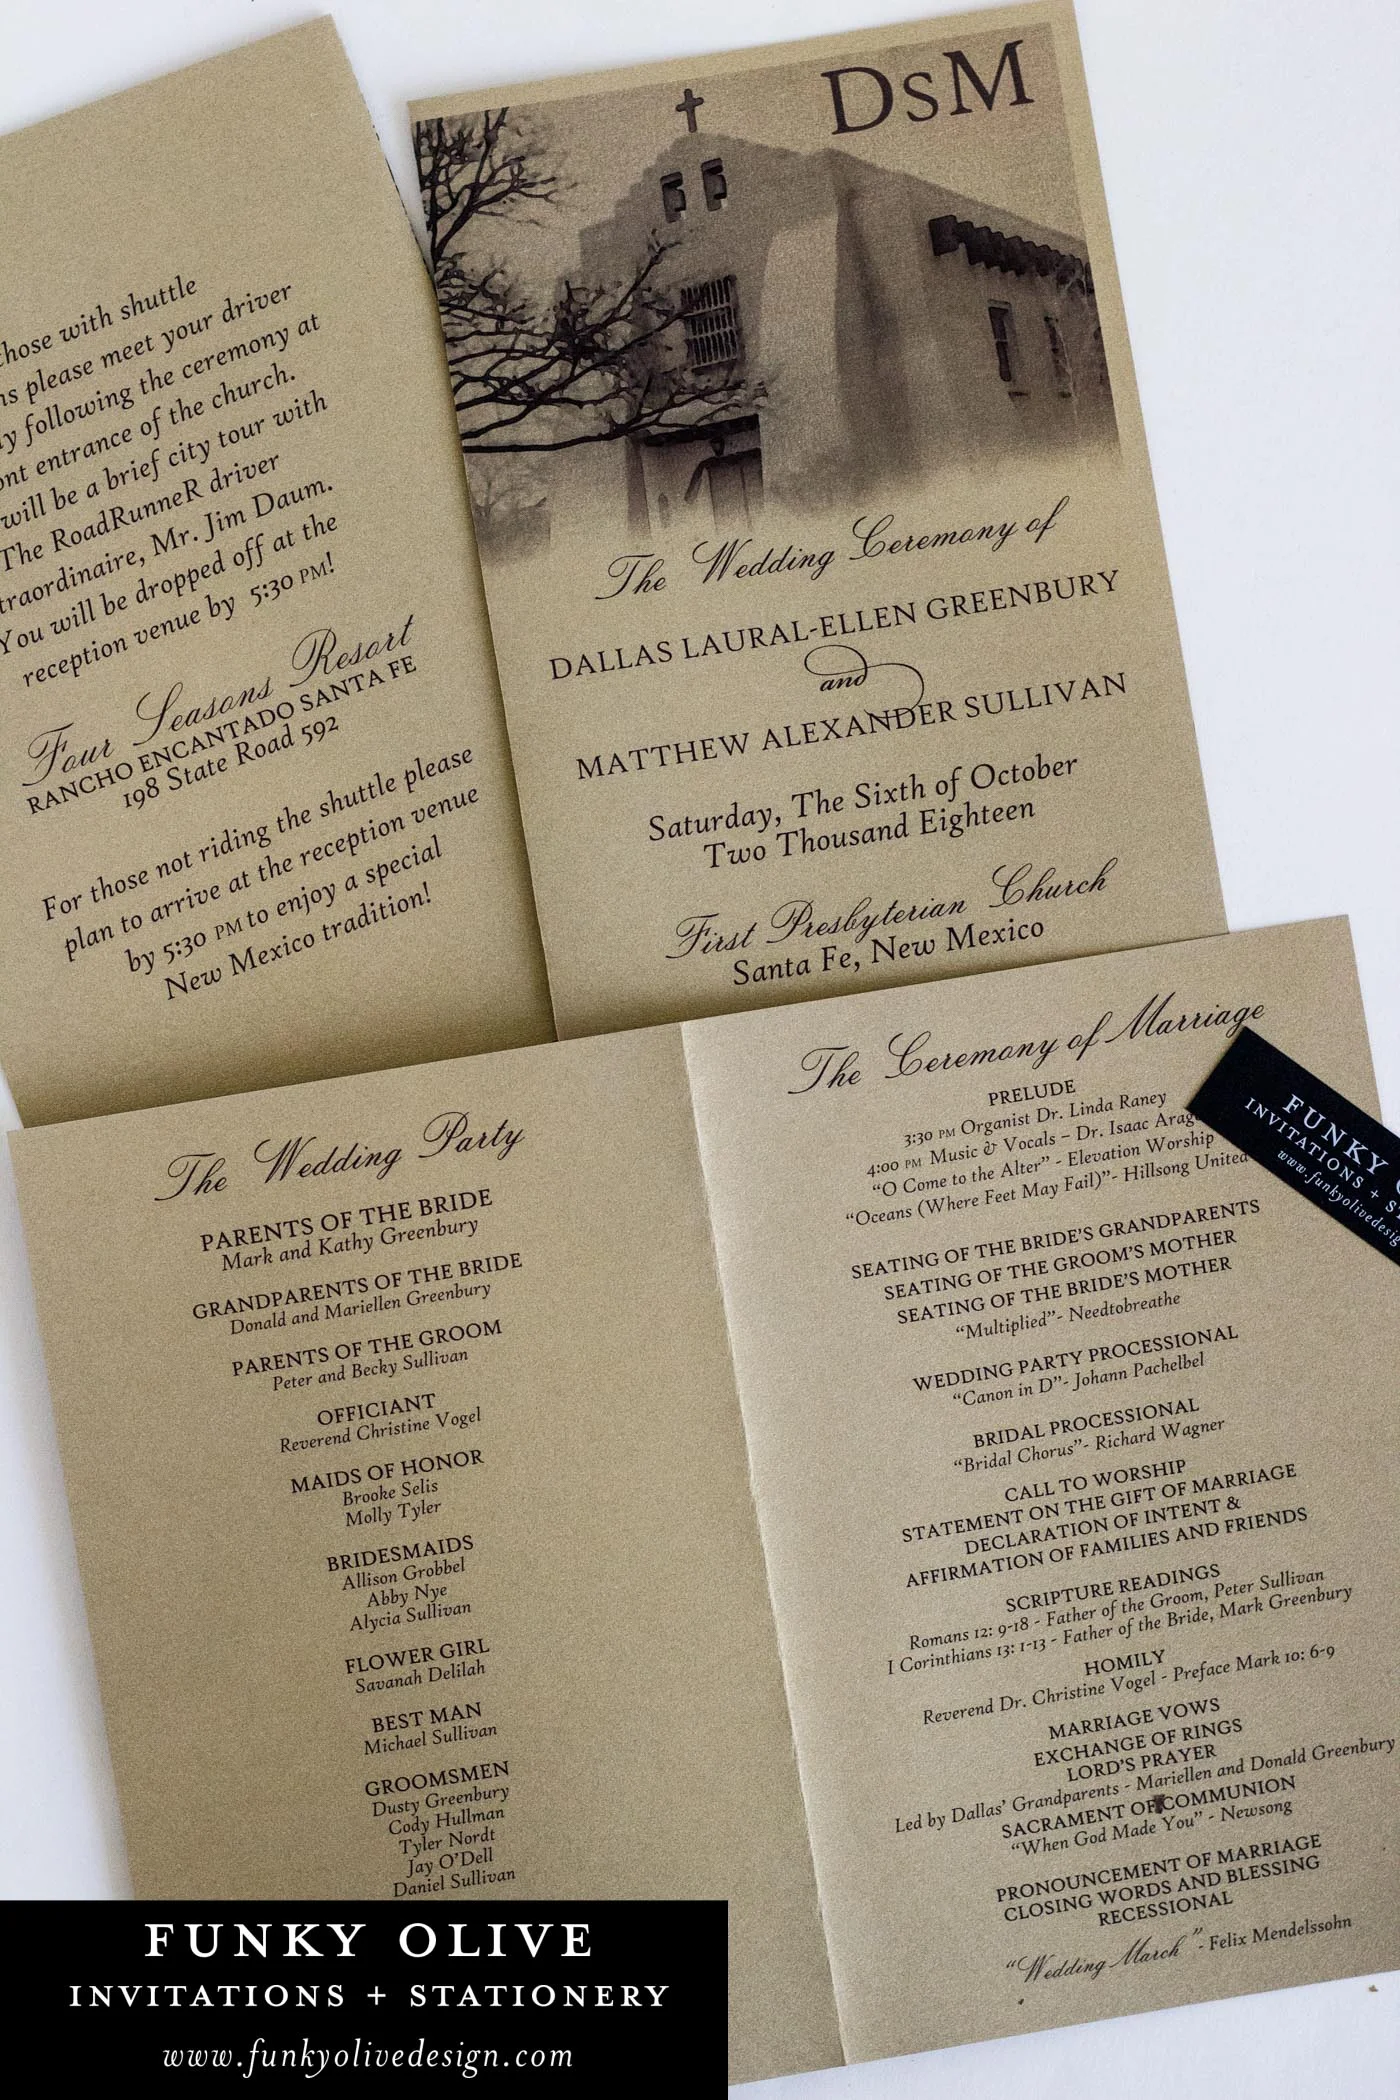 those with shuttle
please meet your driver
following the ceremony at
entrance of the church.
will be a brief city tour with
The RoadRunneR driver
Mr. Jim Daum.
You will be dropped off at the
reception venue by 5:30 PM!
Four Seasons Resort
RANCHO ENCANTADO SANTA FE
198 State Road 592
For those not riding the shuttle please
plan to arrive at the reception venue
by 5:30 PM to enjoy a special
New Mexico tradition!
DsM
The Wedding Ceremony of
DALLAS LAURAL-ELLEN GREENBURY
and
MATTHEW ALEXANDER SULLIVAN
Saturday, The Sixth of October
Two Thousand Eighteen
First Presbyterian Church
Santa Fe, New Mexico
The Wedding Party
PARENTS OF THE BRIDE
Mark and Kathy Greenbury
GRANDPARENTS OF THE BRIDE
Donald and Mariellen Greenbury
PARENTS OF THE GROOM
Peter and Becky Sullivan
OFFICIANT
Reverend Christine Vogel
MAIDS OF HONOR
Brooke Selis
Molly Tyler
BRIDESMAIDS
Allison Grobbel
Abby Nye
Alycia Sullivan
FLOWER GIRL
Savanah Delilah
BEST MAN
Michael Sullivan
GROOMSMEN
Dusty Greenbury
Cody Hullman
Tyler Nordt
Jay O'Dell
Daniel Sullivan
The Ceremony of Marriage
PRELUDE
3:30 PM Organist Dr. Linda Raney
4:00 PM Music & Vocals – Dr. Isaac
“O Come to the Alter” - Elevation Worship
“Oceans (Where Feet May Fail)”- Hillsong United
SEATING OF THE BRIDE'S GRANDPARENTS
SEATING OF THE GROOM'S MOTHER
SEATING OF THE BRIDE'S MOTHER
“Multiplied”- Needtobreathe
WEDDING PARTY PROCESSIONAL
“Canon in D”- Johann Pachelbel
BRIDAL PROCESSIONAL
“Bridal Chorus”- Richard Wagner
CALL TO WORSHIP
STATEMENT ON THE GIFT OF MARRIAGE
DECLARATION OF INTENT &
AFFIRMATION OF FAMILIES AND FRIENDS
SCRIPTURE READINGS
Romans 12: 9-18 - Father of the Groom, Peter Sullivan
I Corinthians 13: 1-13 - Father of the Bride, Mark Greenbury
HOMILY
Reverend Dr. Christine Vogel - Preface Mark 10: 6-9
MARRIAGE VOWS
EXCHANGE OF RINGS
LORD'S PRAYER
Led by Dallas' Grandparents - Mariellen and Donald Greenbury
SACRAMENT OF COMMUNION
“When God Made You” - Newsong
PRONOUNCEMENT OF MARRIAGE
CLOSING WORDS AND BLESSING
RECESSIONAL
“Wedding March” - Felix Mendelssohn
FUNKY
INVITATIONS +
FUNKY OLIVE
INVITATIONS + STATIONERY
www.funkyolivedesign.com